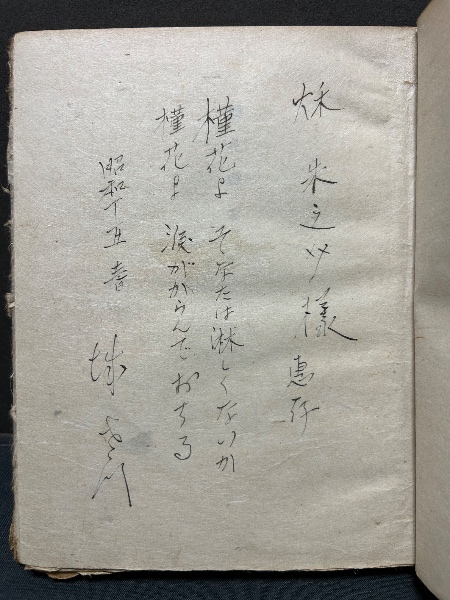 秋 朱之介様 恵存
槿花よ そなたは淋しくないか
槿花よ 涙ががらんでおちる
昭和十五春
城